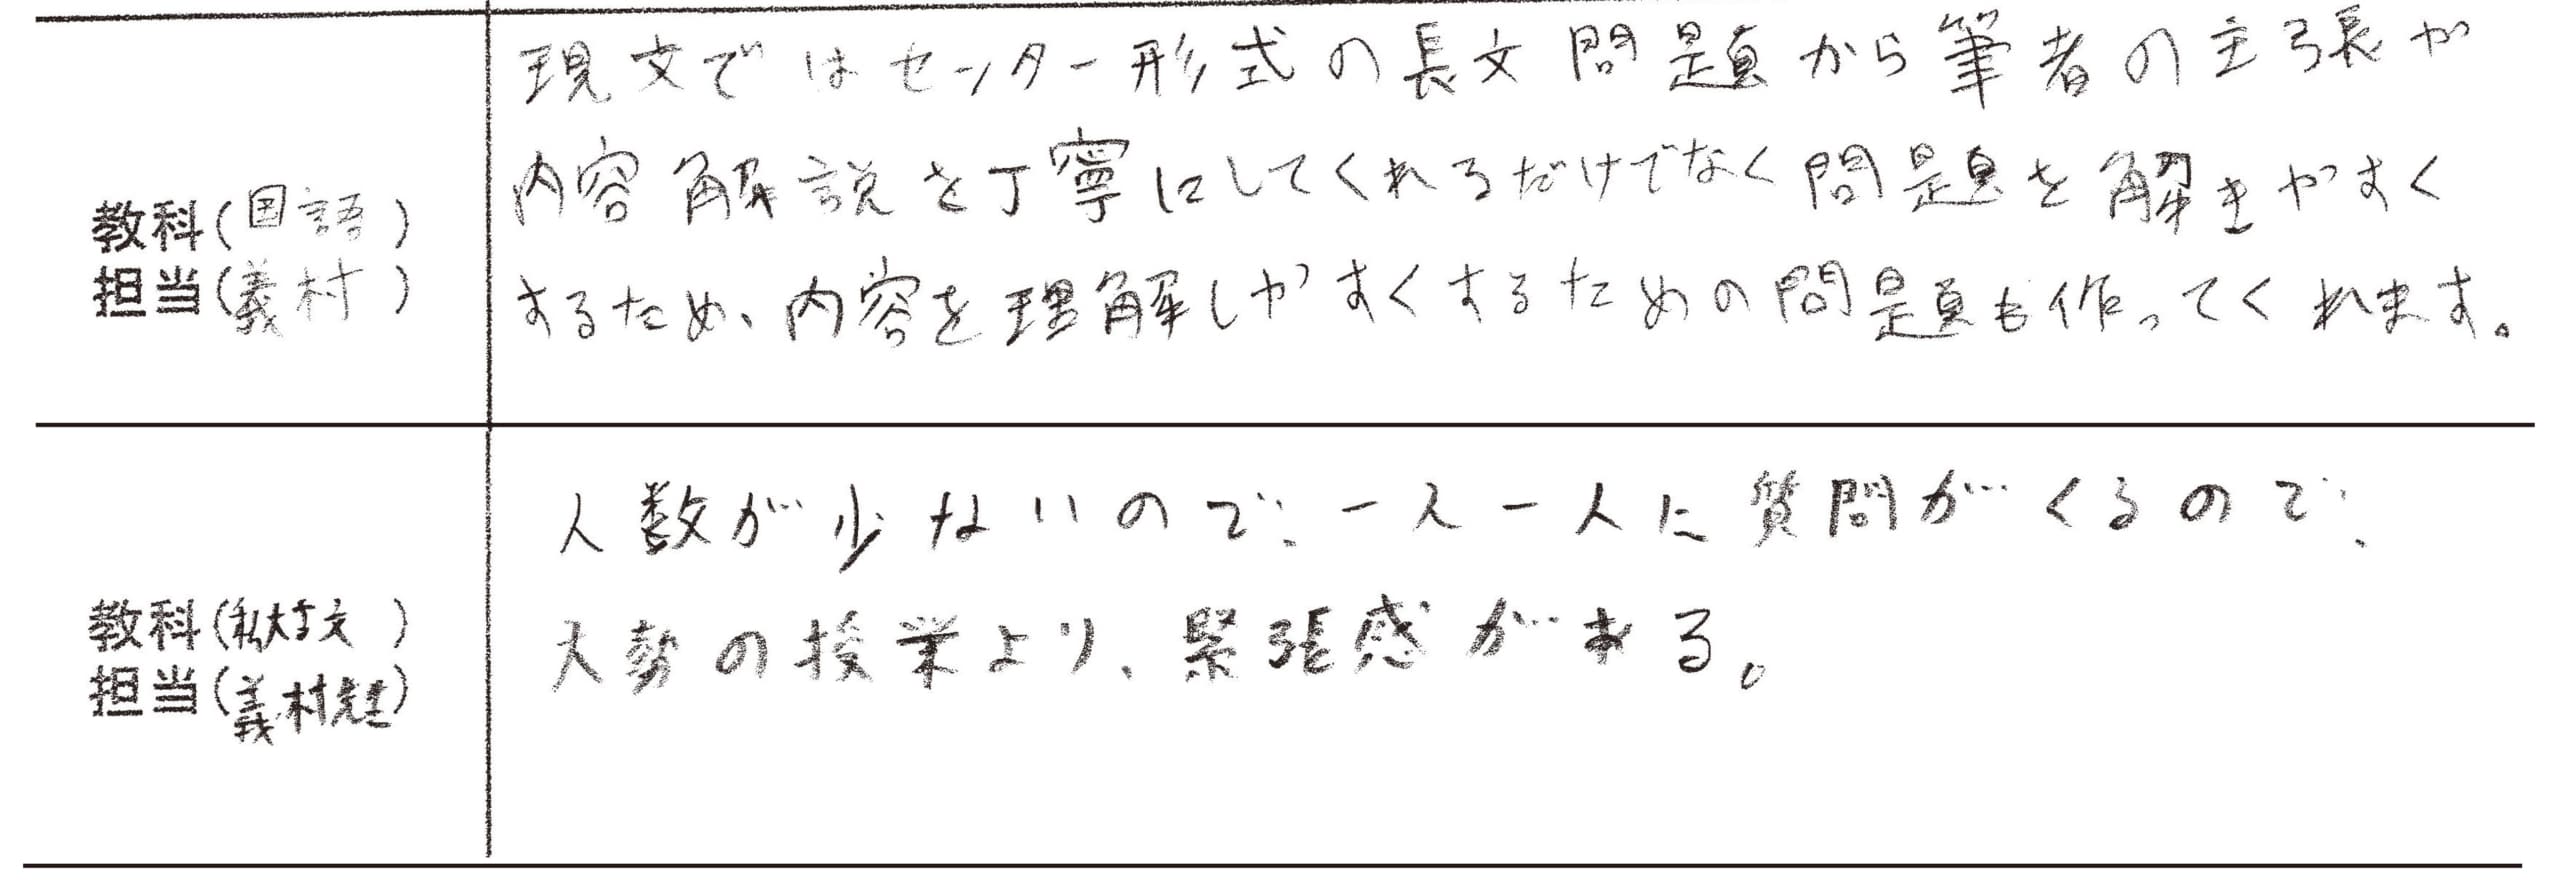 現文ではセンター形式の長文問題から筆者の主張や
内容解説を丁寧にしてくれるだけでなく問題を解きやすく
するため、内容を理解しやすくするための問題も作ってくれます。
教科(国語)
担当(義村)
人数が少ないので、一人一人に質問がくるので、
大勢の授業より、緊張感がある。
教科(私大文)
担当(義村先生)